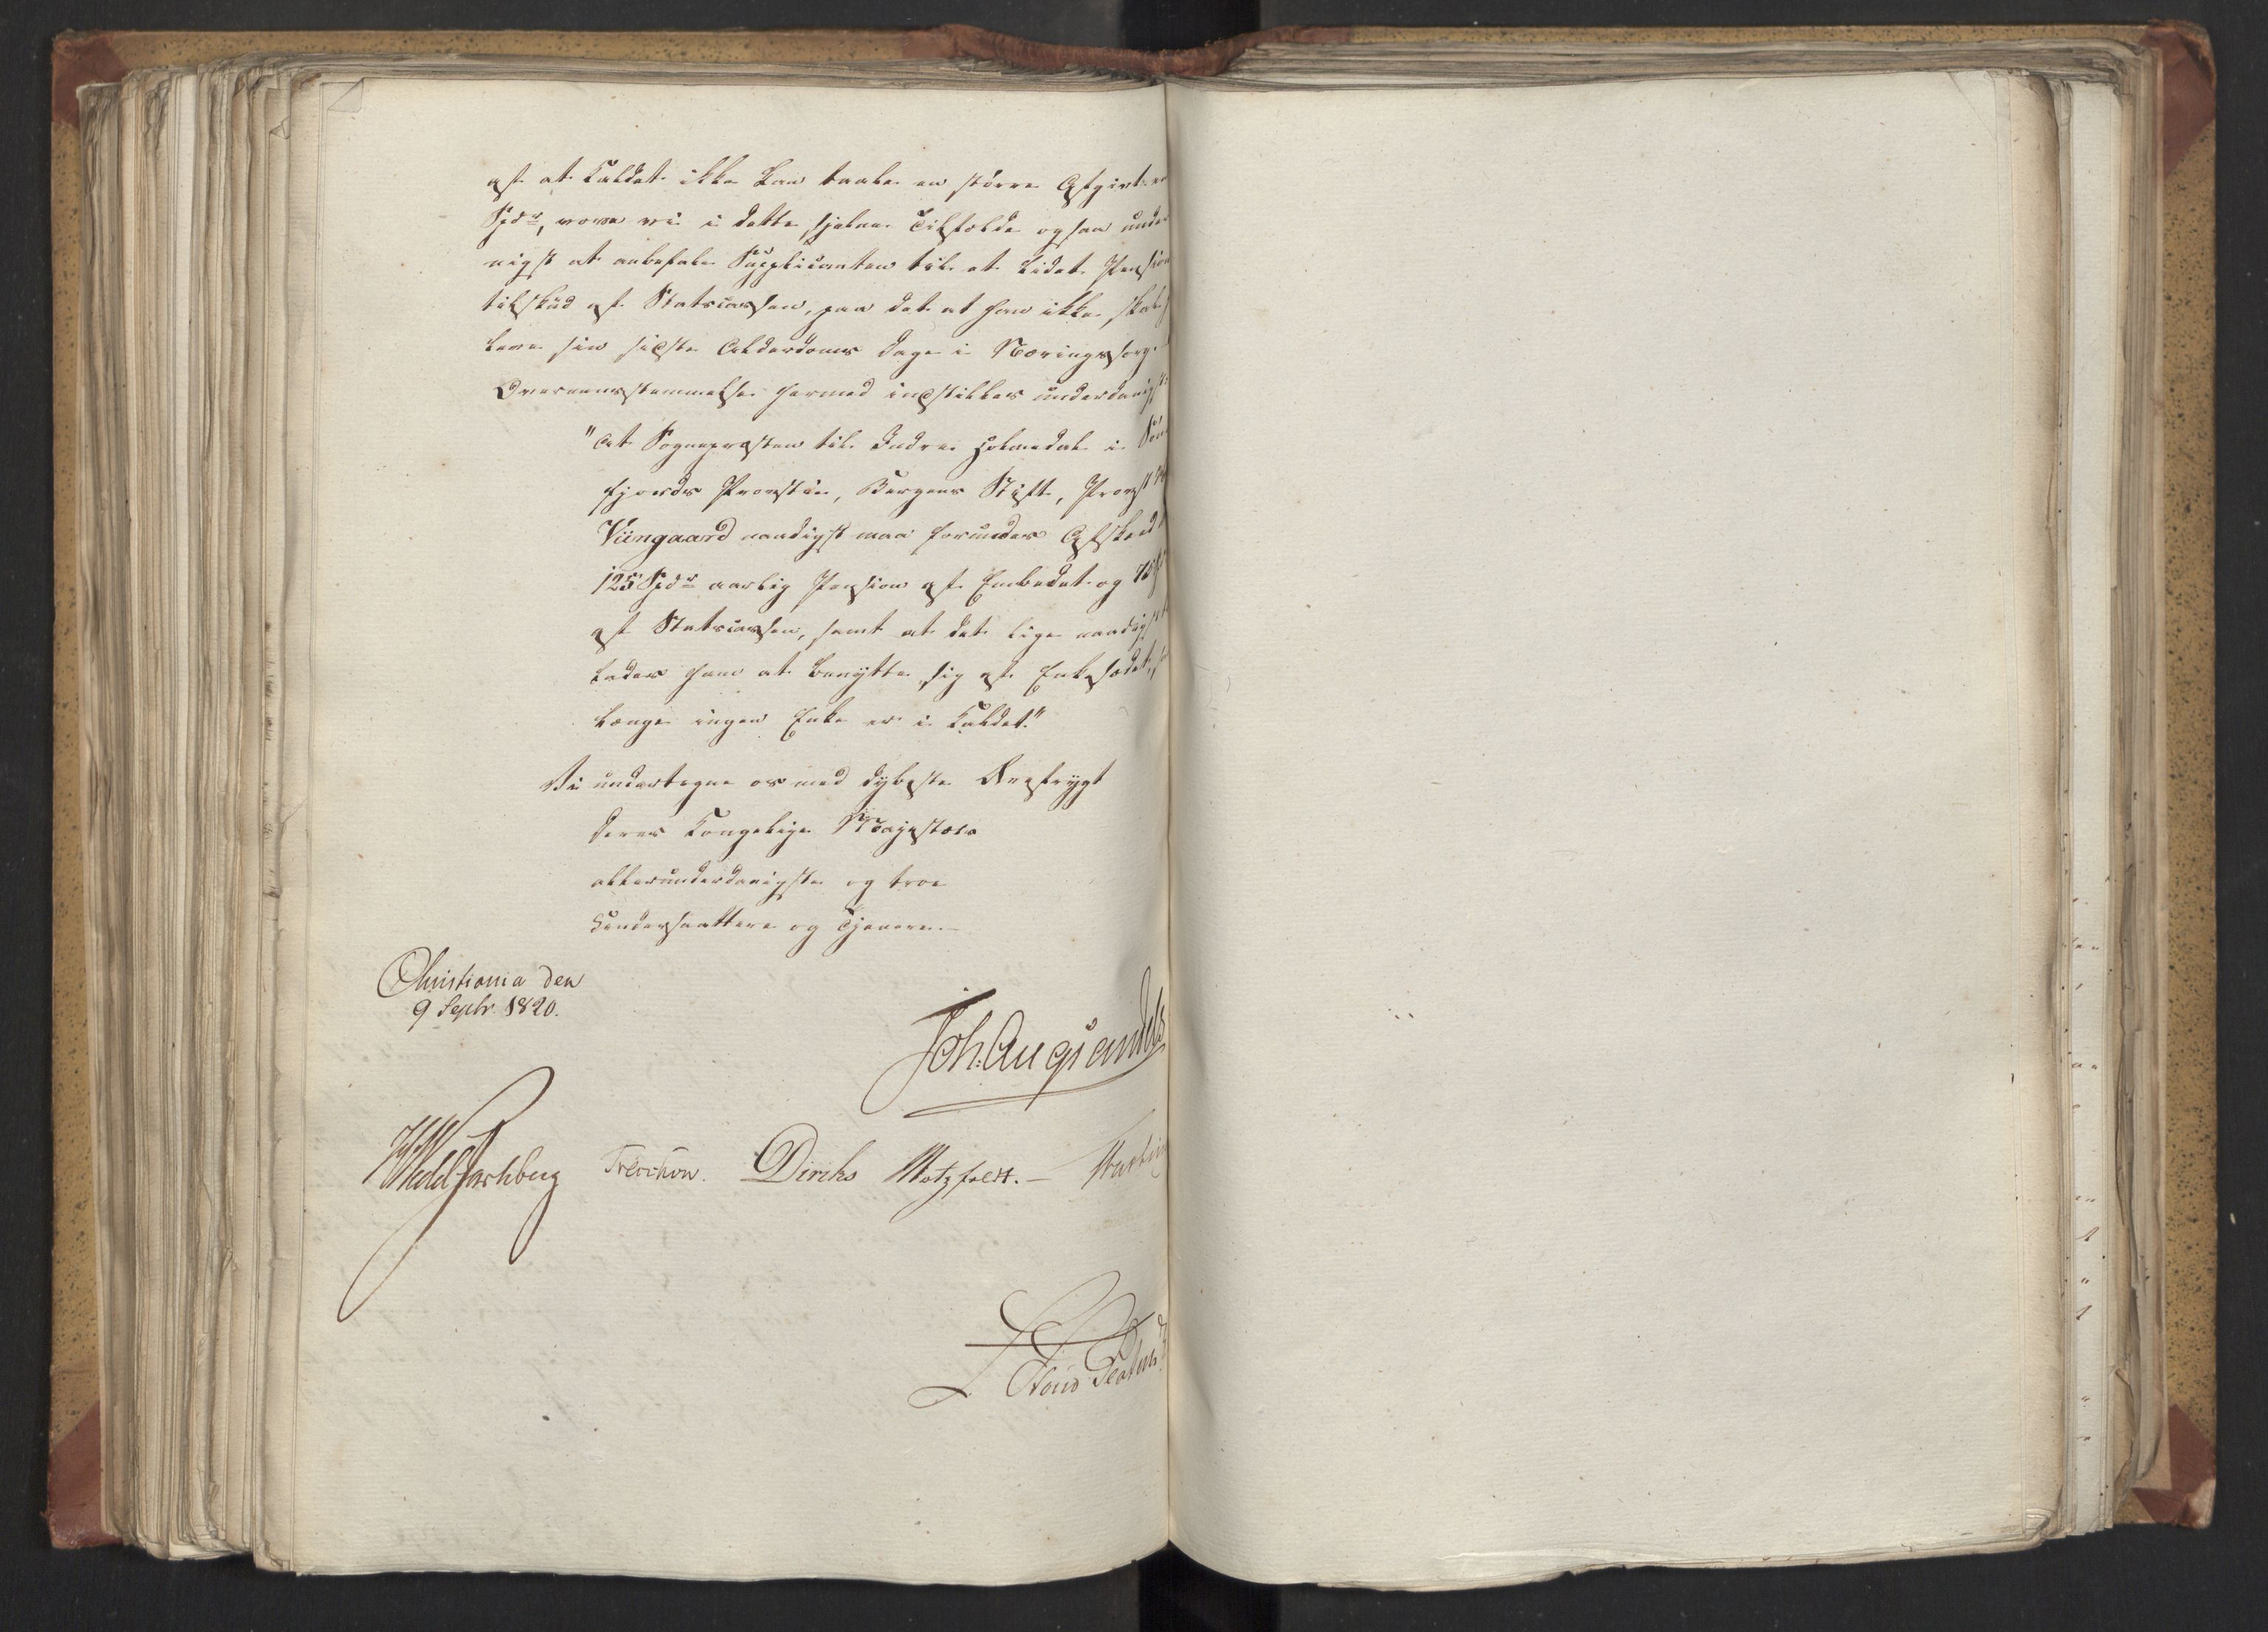 af at Kaldet ikke kan taale en större Afgivt
Spdr, vove vi i dette sjelne Tilfælde ogsaa under
nigst at anbefale Supplicanten til et lidet Pension
tilskud af Statscassen, paa det at han ikke skal
leve sin sidste Alderdoms Dage i Næringssorg
Overeensstemmelse hermed indstilles underdanigst
"At Sognepræsten til Indre Holmedal i Sön
fjords Provstie, Bergens Stift, Provst
Viingaard naadigst maa forundes Afsked
125 Spdr aarlig Pension af Embedet og 75
af Statscassen, samt at det lige naadigst
lades ham at benytte sig af Enkesædet,
længe ingen Enke er i Kaldet."
Vi undertegne os med dybeste Ærefrygt
Deres Kongelige Majestæts
allerunderdanigste og troe
Undersaattere og Tjenere.
Christiania den
9 Septr 1820.
Joh: Aug: Sandels
HWedel Jarlsberg Treschow. Diriks Motzfeldt. –